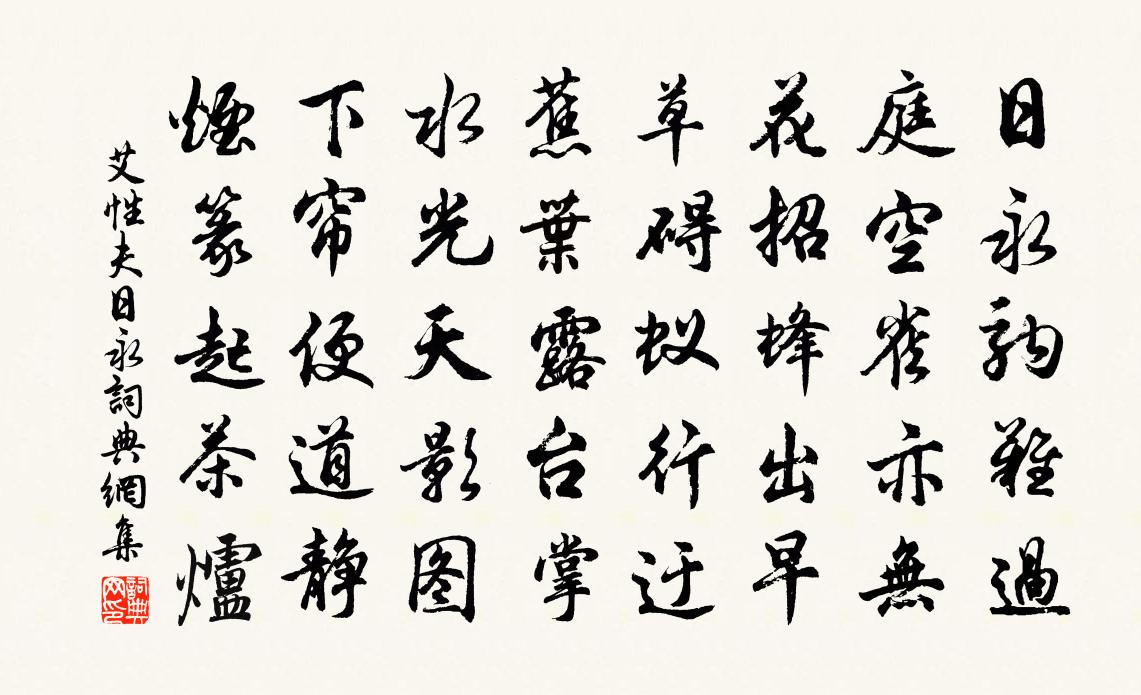 日永詾難過
庭空雀亦無
花招蜂出早
草碍蚁行迂
蕉葉露台掌
水光天影图
下帘便道静
煙篆起茶爐
艾性夫日永詞典網集
詞典网印